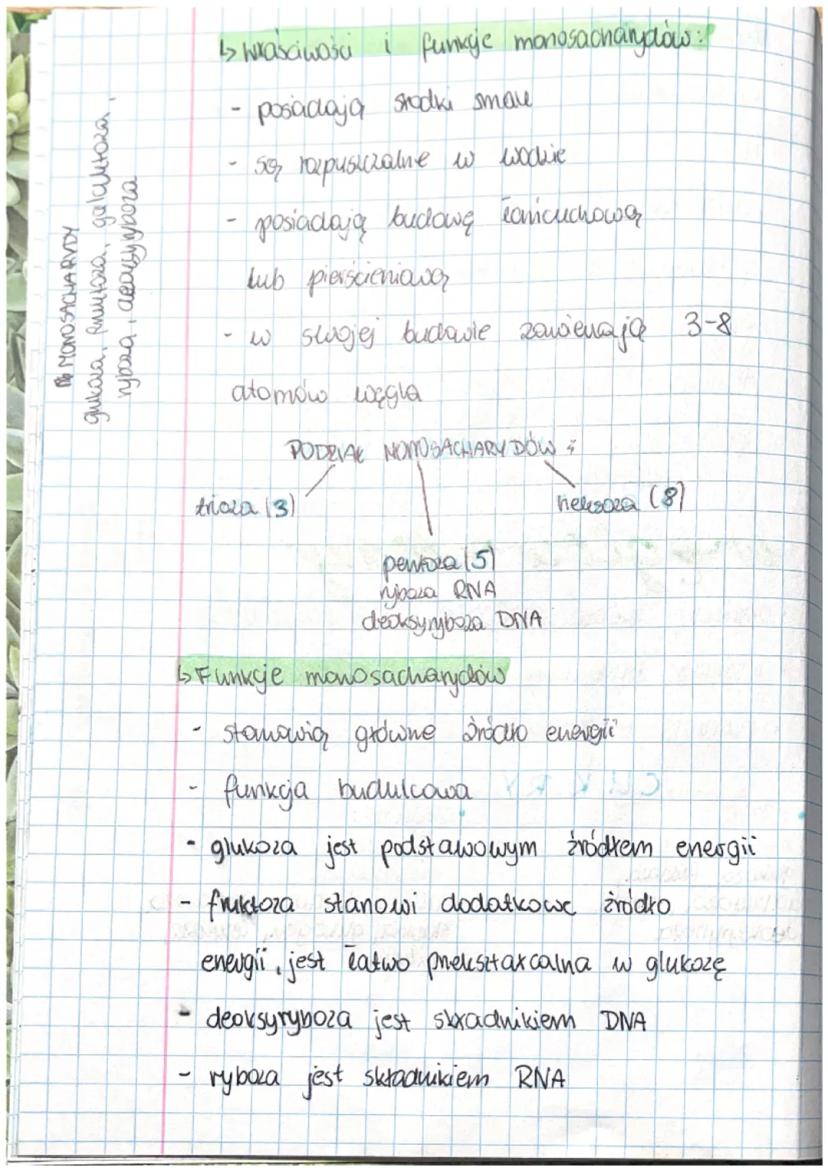 ↳ właściwości i funkcje monosacharydów:
- posiadają słodki smak
- są rozpuszczalne w wodzie
- posiadają budowę łańcuchową
lub pierścieniową
- w swojej budowie zawierają 3-8
atomów węgla
MONOSACHARYDY
glukoza, fruktoza, galaktoza,
ryboza, deoksyryboza
PODZIAŁ MONOSACHARYDÓW:
trioza (3)
heksoza (8)
pentoza (5)
ryboza RNA
deoksyryboza DNA
↳ Funkcje monosacharydów
- stanowią główne źródło energii
- funkcja budulcowa
- glukoza jest podstawowym źródłem energii
- fruktoza stanowi dodatkowe źródło
energii, jest łatwo przekształcalna w glukozę
- deoksyryboza jest składnikiem DNA
- ryboza jest składnikiem RNA